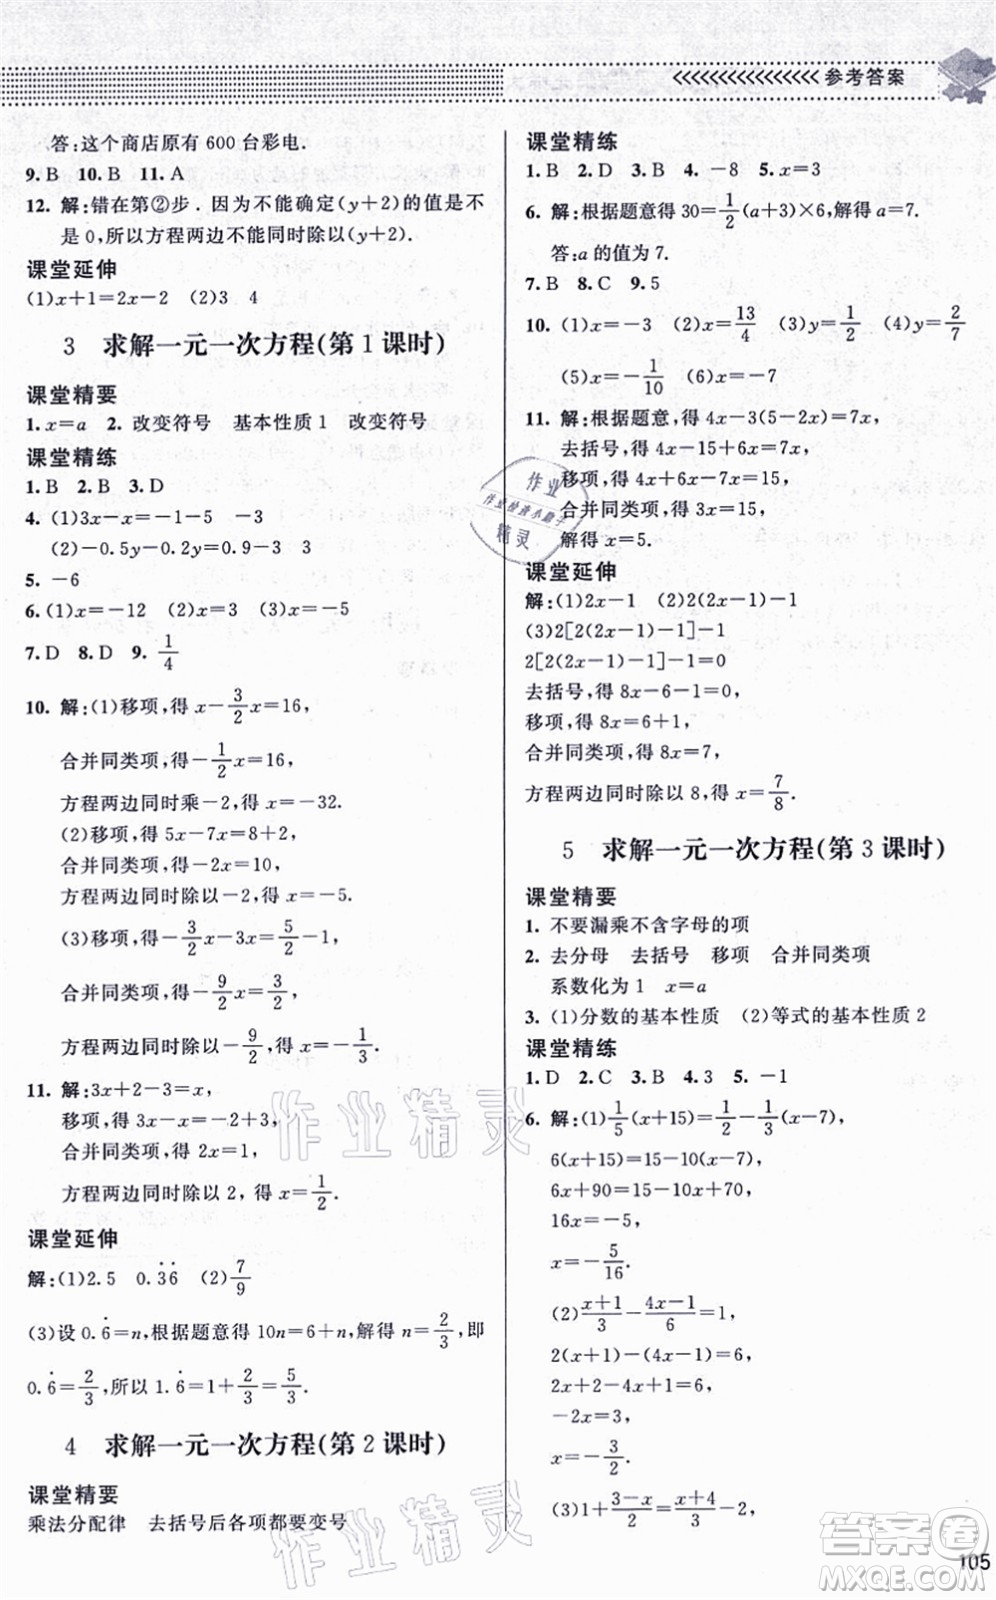 参考答案
答:这个商店原有 600 台彩电.
9. B 10. B 11. A
12. 解:错在第②步. 因为不能确定(y+2)的值是不
是 0,所以方程两边不能同时除以(y+2).
课堂延伸
(1)x+1=2x-2 (2)3 4
3 求解一元一次方程(第 1 课时)
课堂精要
1. x=a 2. 改变符号 基本性质 1 改变符号
课堂精练
1. B 2. B 3. D
4. (1)3x-x=-1-5 -3
(2)-0.5y-0.2y=0.9-3 3
5. -6
6. (1)x=-12 (2)x=3 (3)x=-5
7. D 8. D 9. 1/4
10. 解:(1)移项,得 x-3/2x=16,
合并同类项,得-1/2x=16,
方程两边同时乘-2,得 x=-32.
(2)移项,得 5x-7x=8+2,
合并同类项,得-2x=10,
方程两边同时除以-2,得 x=-5.
(3)移项,得-3/2x-3x=5/2-1,
合并同类项,得-9/2x=3/2,
方程两边同时除以-9/2,得 x=-1/3.
11. 解:3x+2-3=x,
移项,得 3x-x=3-2,
合并同类项,得 2x=1,
方程两边同时除以 2,得 x=1/2.
课堂延伸
解:(1)2.5 0.3̇6̇ (2)7/9
(3)设 0.6̇=n,根据题意得 10n=6+n,解得 n=2/3,即
0.6̇=2/3,所以 1.6̇=1+2/3=5/3.
4 求解一元一次方程(第 2 课时)
课堂精要
乘法分配律 去括号后各项都要变号
课堂精练
1. B 2. D 3. B 4. -8 5. x=3
6. 解:根据题意得 30=1/2(a+3)×6,解得 a=7.
答:a 的值为 7.
7. B 8. C 9. 5
10. (1)x=-3 (2)x=13/4 (3)y=1/2 (4)y=2/7
(5)x=-1/10 (6)x=-7
11. 解:根据题意,得 4x-3(5-2x)=7x,
去括号,得 4x-15+6x=7x,
移项,得 4x+6x-7x=15,
合并同类项,得 3x=15,
解得 x=5.
课堂延伸
解:(1)2x-1 (2)2(2x-1)-1
(3)2[2(2x-1)-1]-1
2[2(2x-1)-1]-1=0
去括号,得 8x-6-1=0,
移项,得 8x=6+1,
合并同类项,得 8x=7,
方程两边同时除以 8,得 x=7/8.
5 求解一元一次方程(第 3 课时)
课堂精要
1. 不要漏乘不含字母的项
2. 去分母 去括号 移项 合并同类项
系数化为 1 x=a
3. (1)分数的基本性质 (2)等式的基本性质 2
课堂精练
1. D 2. C 3. B 4. 3 5. -1
6. 解:(1)1/5(x+15)=1/2-1/3(x-7),
6(x+15)=15-10(x-7),
6x+90=15-10x+70,
16x=-5,
x=-5/16.
(2)(x+1)/3-(4x-1)/6=1,
2(x+1)-(4x-1)=6,
2x+2-4x+1=6,
-2x=3,
x=-3/2.
(3)1+(3-x)/2=(x+4)/3-2,
105
作业
作业检查小助手
精灵
作业精灵
作业精灵
答案卷
MXQE.COM